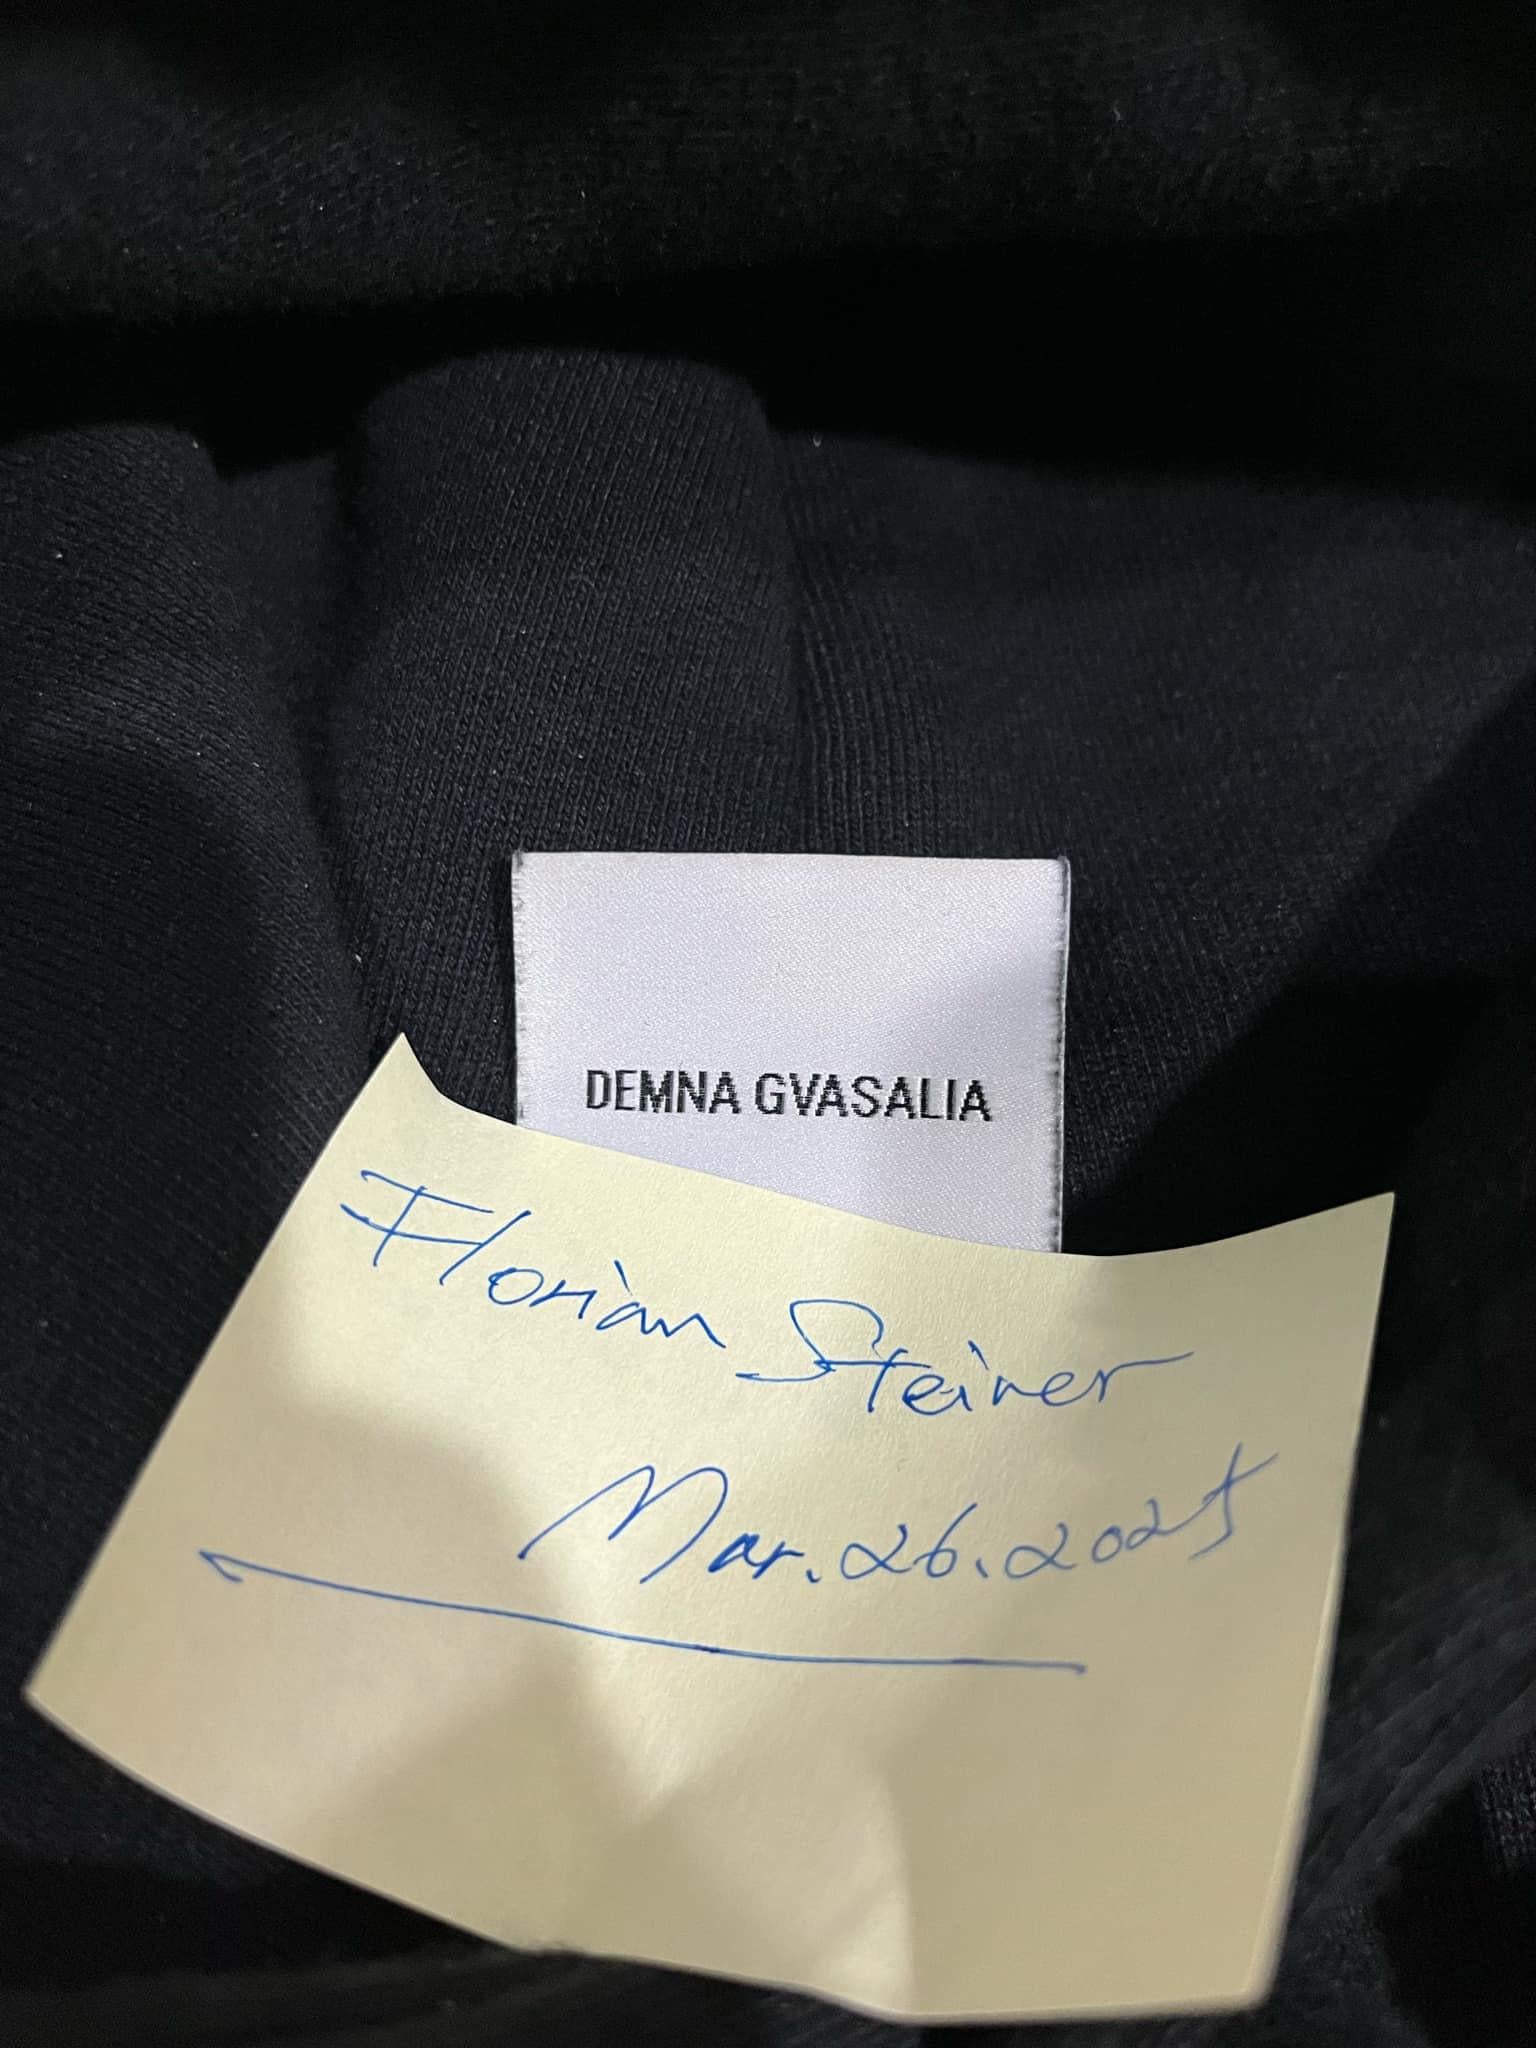 DEMNA GVASALIA
Florian Steiner
Mar. 26. 2025